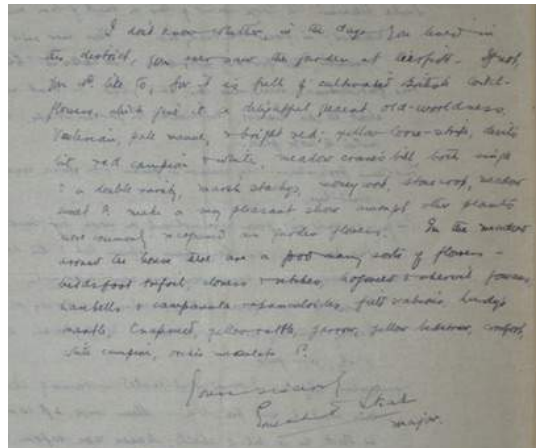 I don't know whether, in the days you lived in
this district, you ever saw the garden at . If not,
you wd. like to, for it is full of cultivated British wild-
flowers, which give it a delightful old-worldness.
Valerian, pale mauve, & bright red; yellow loose-strife, devils
bit, red campion & white, meadow cranes bill both single
& a double variety, marsh stachys, money wort, stonecrop, meadow
sweet &, make a very pleasant show amongst other plants
more commonly recognised as garden flowers. In the meadows
around the house there are a good many sorts of flowers -
birdsfoot trefoil, clovers & vetches, hogweed & chervil,
harebells & campanula rapunculoides, field valerian, lady's
mantle, knapweed, yellow rattle, yarrow, yellow bedstraw, comfrey,
white campion, orchis maculata &.
Yours sincerely
major.